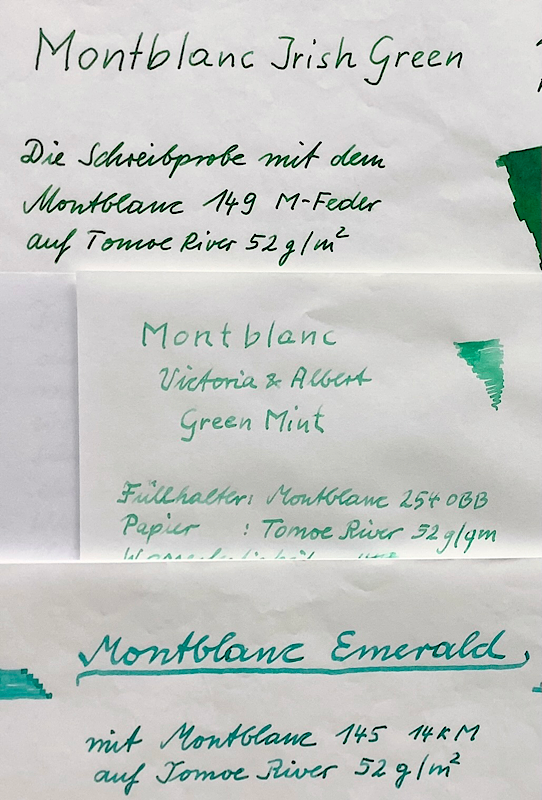 Montblanc Irish Green
Die Schreibprobe mit dem
Montblanc 149 M-Feder
auf Tomoe River 52 g/m²
Montblanc
Victoria & Albert
Green Mint
Füllhalter: Montblanc 254 OBB
Papier : Tomoe River 52 g/qm
Montblanc Emerald,
mit Montblanc 145 14K M
auf Tomoe River 52 g/m²